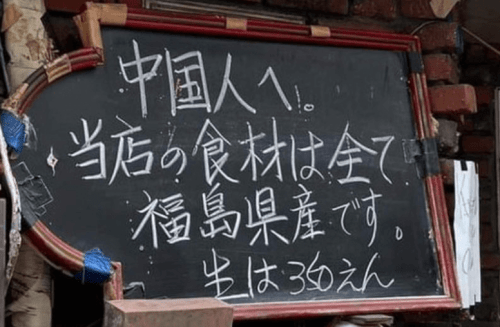 中国人へ!。
当店の食材は全て
福島県産です。
生は350えん